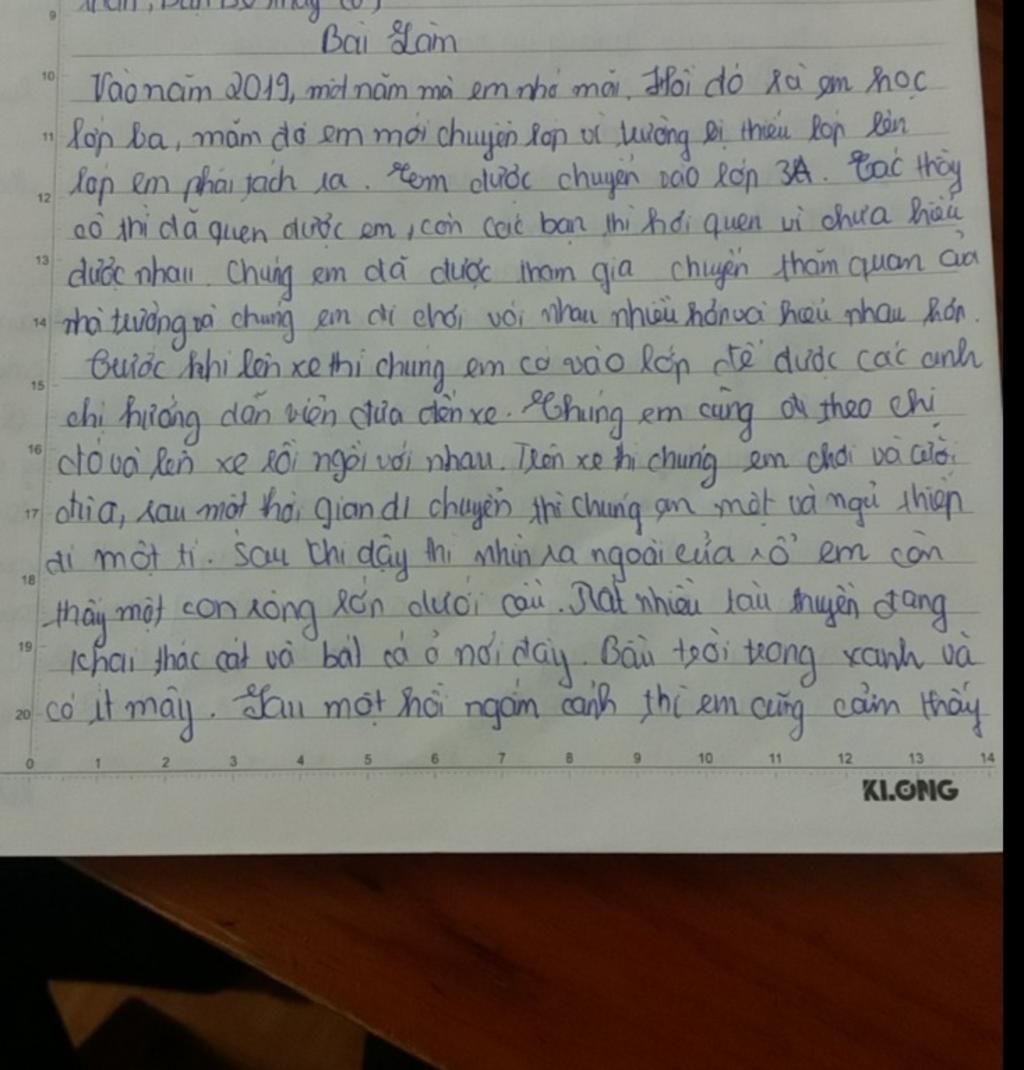 Bài Làm
Vào năm 2019, một năm mà em nhớ mãi. Hồi đó là em học
lớp ba, năm đó em mới chuyển lớp vì trường bị thiếu lớp lên
lớp em phải tách ra. Em được chuyển vào lớp 3A. Các thầy
cô thì đã quen được em, còn các bạn thì hơi quen vì chưa hiểu
được nhau. Chúng em đã được tham gia chuyến thăm quan của
nhà trường và chúng em đi chơi với nhau nhiều hơn và hiểu nhau hơn.
Trước khi lên xe thì chúng em có vào lớp để được các anh
chị hướng dẫn viên đưa đến xe. Chúng em cũng đi theo chị
đó và lên xe rồi ngồi với nhau. Trên xe thì chúng em chơi và cười
đùa, sau một thời gian di chuyển thì chúng em mệt và ngủ thiếp
đi một tí. Sau khi dậy thì nhìn ra ngoài cửa sổ em còn
thấy một con sông lớn dưới cầu. Rất nhiều tàu thuyền đang
khai thác cát và bắt cá ở nơi đây. Bầu trời trong xanh và
có ít mây. Sau một hồi ngắm cảnh thì em cũng cảm thấy
9
10
11
12
13
14
15
16
17
18
19
20
0 1 2 3 4 5 6 7 8 9 10 11 12 13 14
KLONG